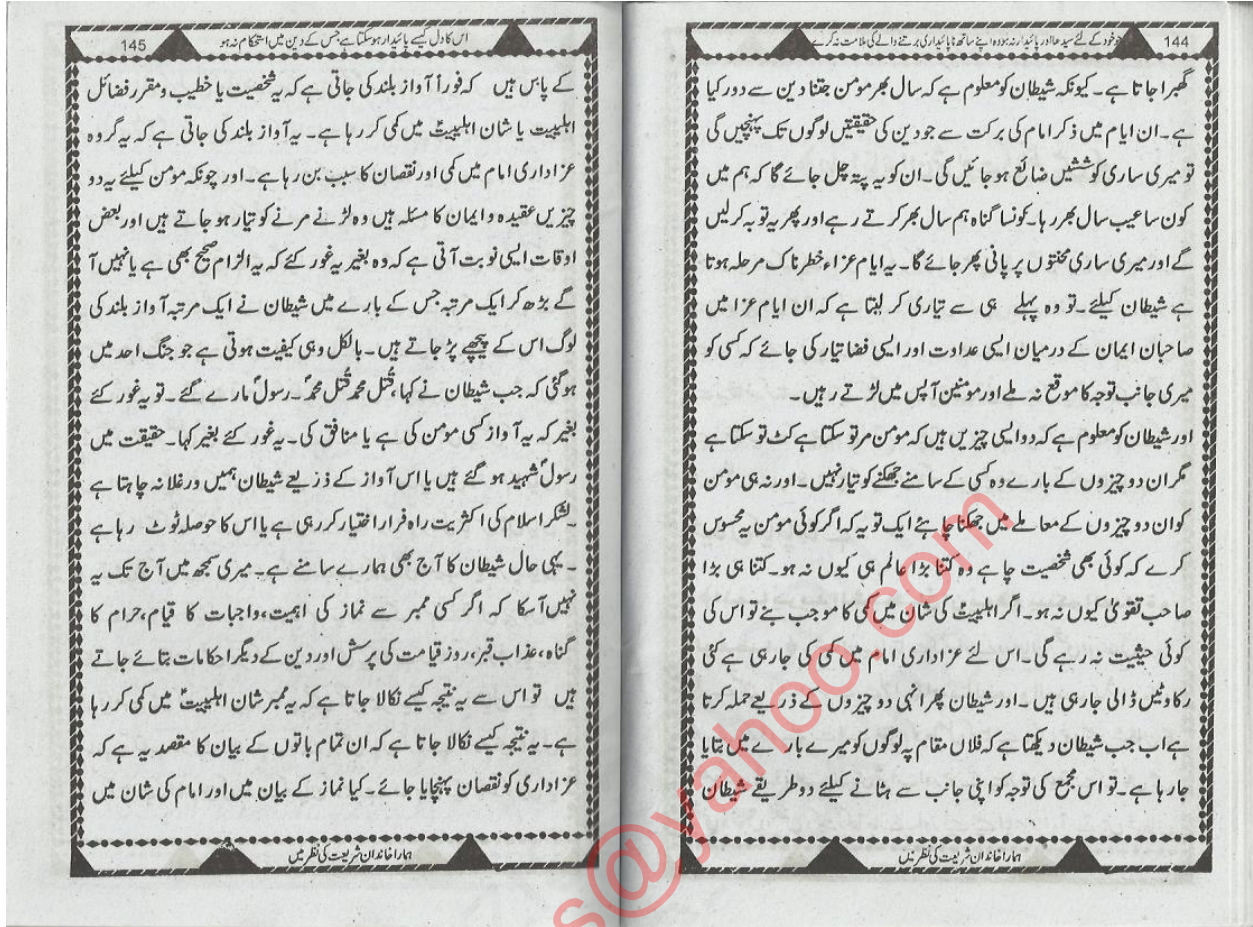 144
جو خود کے لئے سیدھا اور پائیدار نہ ہو وہ اپنے ساتھ ناپائیداری برتنے والے کی ملامت نہ کرے
گھبرا جاتا ہے۔ کیونکہ شیطان کو معلوم ہے کہ سال بھر مومن جتنا دین سے دور کیا
ہے۔ ان ایام میں ذکر امام کی برکت سے جو دین کی حقیقتیں لوگوں تک پہنچیں گی
تو میری ساری کوششیں ضائع ہو جائیں گی۔ ان کو یہ پتہ چل جائے گا کہ ہم میں
کون سا عیب سال بھر رہا۔ کونسا گناہ ہم سال بھر کرتے رہے اور پھر یہ توبہ کر لیں
گے اور میری ساری محنتوں پر پانی پھر جائے گا۔ یہ ایام عزاء خطرناک مرحلہ ہوتا
ہے شیطان کیلئے۔ تو وہ پہلے ہی سے تیاری کر لیتا ہے کہ ان ایام عزا میں
صاحبان ایمان کے درمیان ایسی عداوت اور ایسی فضا تیار کی جائے کہ کسی کو
میری جانب توجہ کا موقع نہ ملے اور مومنین آپس میں لڑتے رہیں۔
اور شیطان کو معلوم ہے کہ دو ایسی چیزیں ہیں کہ مومن مر تو سکتا ہے کٹ تو سکتا ہے
مگر ان دو چیزوں کے بارے وہ کسی کے سامنے جھکنے کو تیار نہیں۔ اور نہ ہی مومن
کو ان دو چیزوں کے معاملے میں جھکنا چاہئے ایک تو یہ کہ اگر کوئی مومن یہ محسوس
کرے کہ کوئی بھی شخصیت چاہے وہ کتنا بڑا عالم ہی کیوں نہ ہو۔ کتنا ہی بڑا
صاحب تقویٰ کیوں نہ ہو۔ اگر اہلبیتؑ کی شان میں کمی کا موجب بنے تو اس کی
کوئی حیثیت نہ رہے گی۔ اس لئے عزاداری امام میں کمی کی جا رہی ہے کئی
رکاوٹیں ڈالی جا رہی ہیں ۔ اور شیطان پھر انہی دو چیزوں کے ذریعے حملہ کرتا
ہے اب جب شیطان دیکھتا ہے کہ فلاں مقام پہ لوگوں کو میرے بارے میں بتایا
جا رہا ہے۔ تو اس مجمع کی توجہ کو اپنی جانب سے ہٹانے کیلئے دو طریقے شیطان
ہمارا خاندان شریعت کی نظر میں
145
اس کا دل کیسے پائیدار ہو سکتا ہے جس کے دین میں استحکام نہ ہو
کے پاس ہیں کہ فوراً آواز بلند کی جاتی ہے کہ یہ شخصیت یا خطیب و مقرر فضائل
اہلبیت یا شان اہلبیتؑ میں کمی کر رہا ہے۔ یہ آواز بلند کی جاتی ہے کہ یہ گروہ
عزاداری امام میں کمی اور نقصان کا سبب بن رہا ہے۔ اور چونکہ مومن کیلئے یہ دو
چیزیں عقیدہ و ایمان کا مسئلہ ہیں وہ لڑنے مرنے کو تیار ہو جاتے ہیں اور بعض
اوقات ایسی نوبت آتی ہے کہ وہ بغیر یہ غور کئے کہ یہ الزام صحیح بھی ہے یا نہیں آ
گے بڑھ کر ایک مرتبہ جس کے بارے میں شیطان نے ایک مرتبہ آواز بلند کی
لوگ اس کے پیچھے پڑ جاتے ہیں۔ بالکل وہی کیفیت ہوتی ہے جو جنگ احد میں
ہو گئی کہ جب شیطان نے کہا، قُتل محمدؐ قُتل محمدؐ ۔ رسولؐ مارے گئے۔ تو یہ غور کئے
بغیر کہ یہ آواز کسی مومن کی ہے یا منافق کی۔ یہ غور کئے بغیر کہا۔ حقیقت میں
رسولؐ شہید ہو گئے ہیں یا اس آواز کے ذریعے شیطان ہمیں ورغلانہ چاہتا ہے
۔ لشکر اسلام کی اکثریت راہ فرار اختیار کر رہی ہے یا اس کا حوصلہ ٹوٹ رہا ہے
۔ یہی حال شیطان کا آج بھی ہمارے سامنے ہے۔ میری سمجھ میں آج تک یہ
نہیں آسکا کہ اگر کسی ممبر سے نماز کی اہمیت، واجبات کا قیام، حرام کا
گناہ، عذاب قبر، روز قیامت کی پرسش اور دین کے دیگر احکامات بتائے جاتے
ہیں تو اس سے یہ نتیجہ کیسے نکالا جاتا ہے کہ یہ ممبر شان اہلبیتؑ میں کمی کر رہا
ہے۔ یہ نتیجہ کیسے نکالا جاتا ہے کہ ان تمام باتوں کے بیان کا مقصد یہ ہے کہ
عزاداری کو نقصان پہنچایا جائے۔ کیا نماز کے بیان میں اور امام کی شان میں
ہمارا خاندان شریعت کی نظر میں
s@yahoo.com